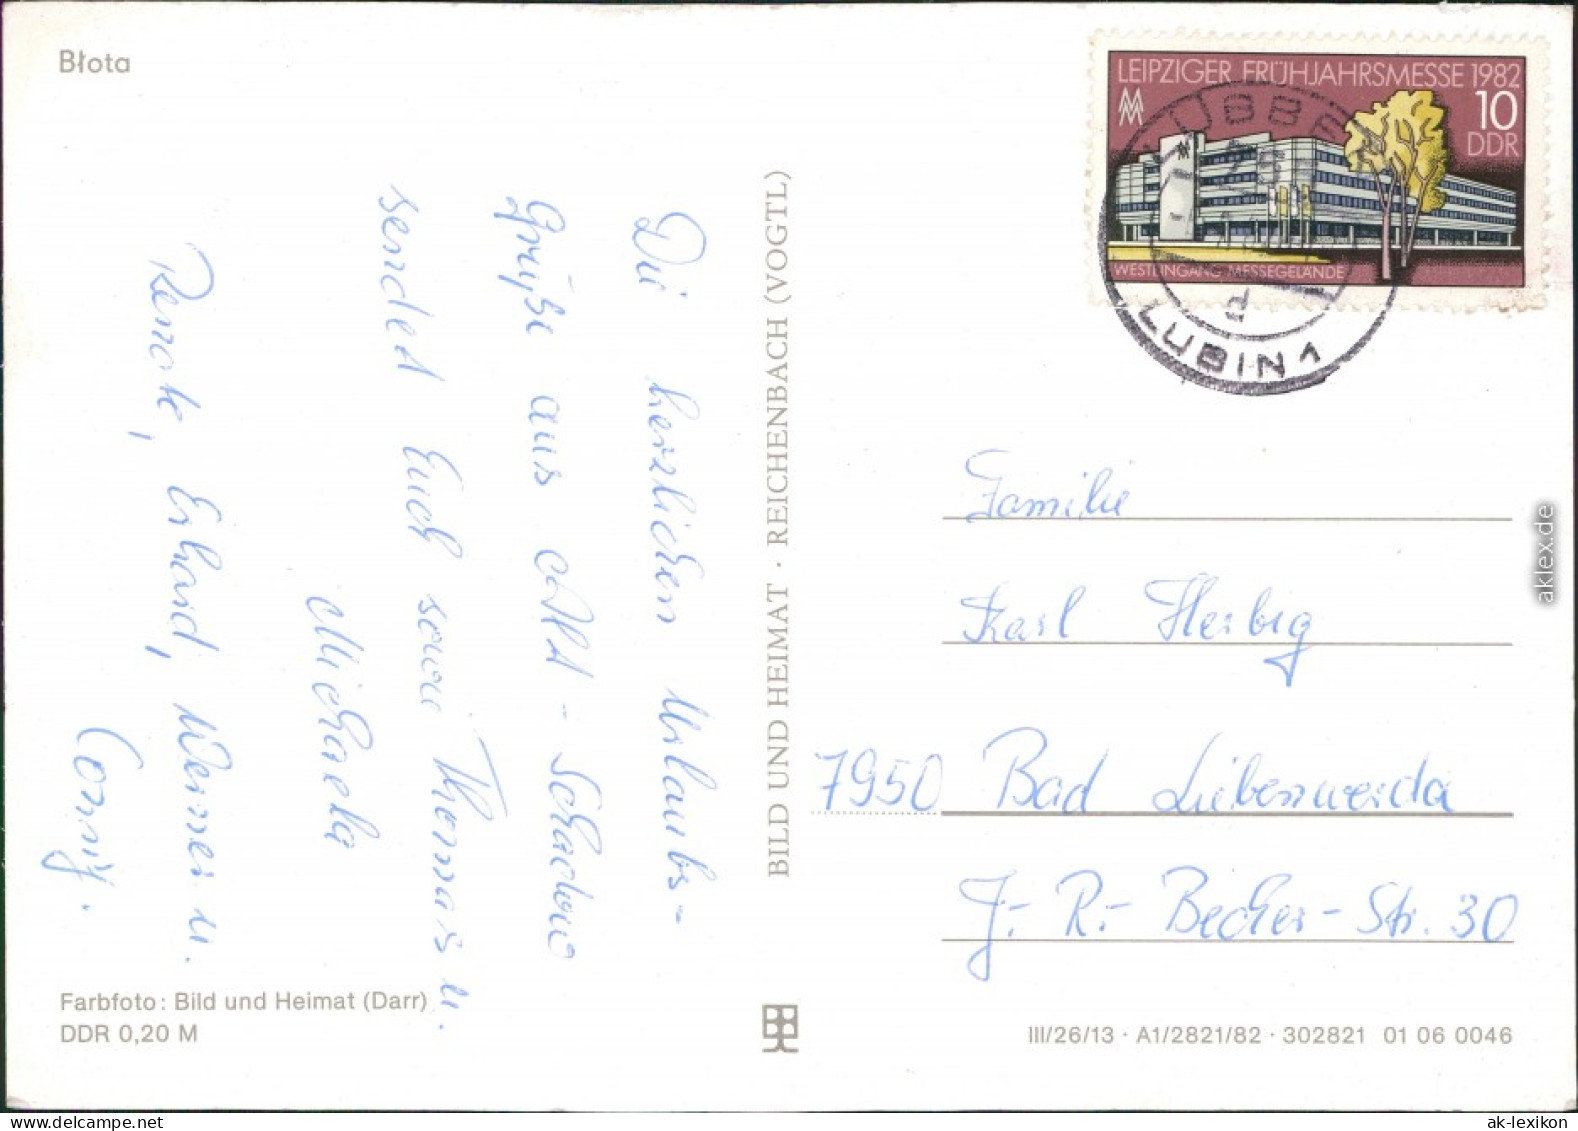 Błota
LEIPZIGER FRÜHJAHRSMESSE 1982
10
DDR
WESTEINGANG MESSEGELÄNDE
LÜBBEN
LUBIN 1
Die herzlichen Urlaubs-
grüße aus Alt-Schadow
sendet Euch sowie Thomas u.
Michaela
Renate, Erhard, Werner u.
Conny.
BILD UND HEIMAT · REICHENBACH (VOGTL)
Familie
Karl Herbig
7950 Bad Liebenwerda
J.-R.-Becher-Str. 30
Farbfoto: Bild und Heimat (Darr)
DDR 0,20 M
III/26/13 · A1/2821/82 · 302821 01 06 0046
aklex.de
ak-lexikon